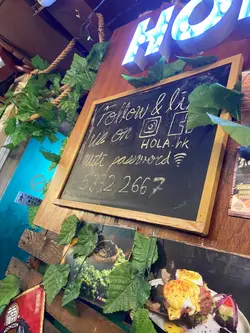 HOL
Follow & li
us on
HOLA.hk
wifi password
5332 2667